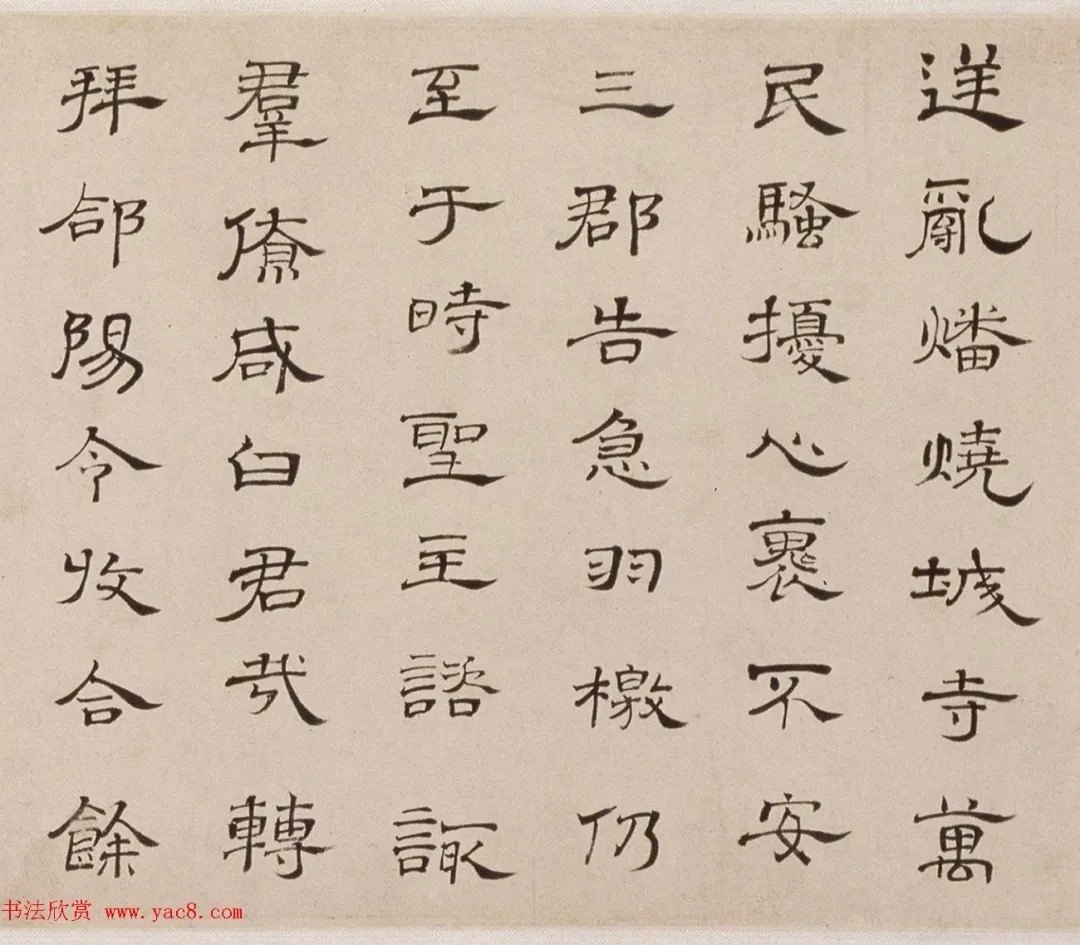 逆亂燔燒城寺萬
民騷擾心裏不安
三郡告急羽檄仍
至于時聖主諮諏
羣僚咸白君哉轉
拜郃陽令收合餘
书法欣赏 www.yac8.com